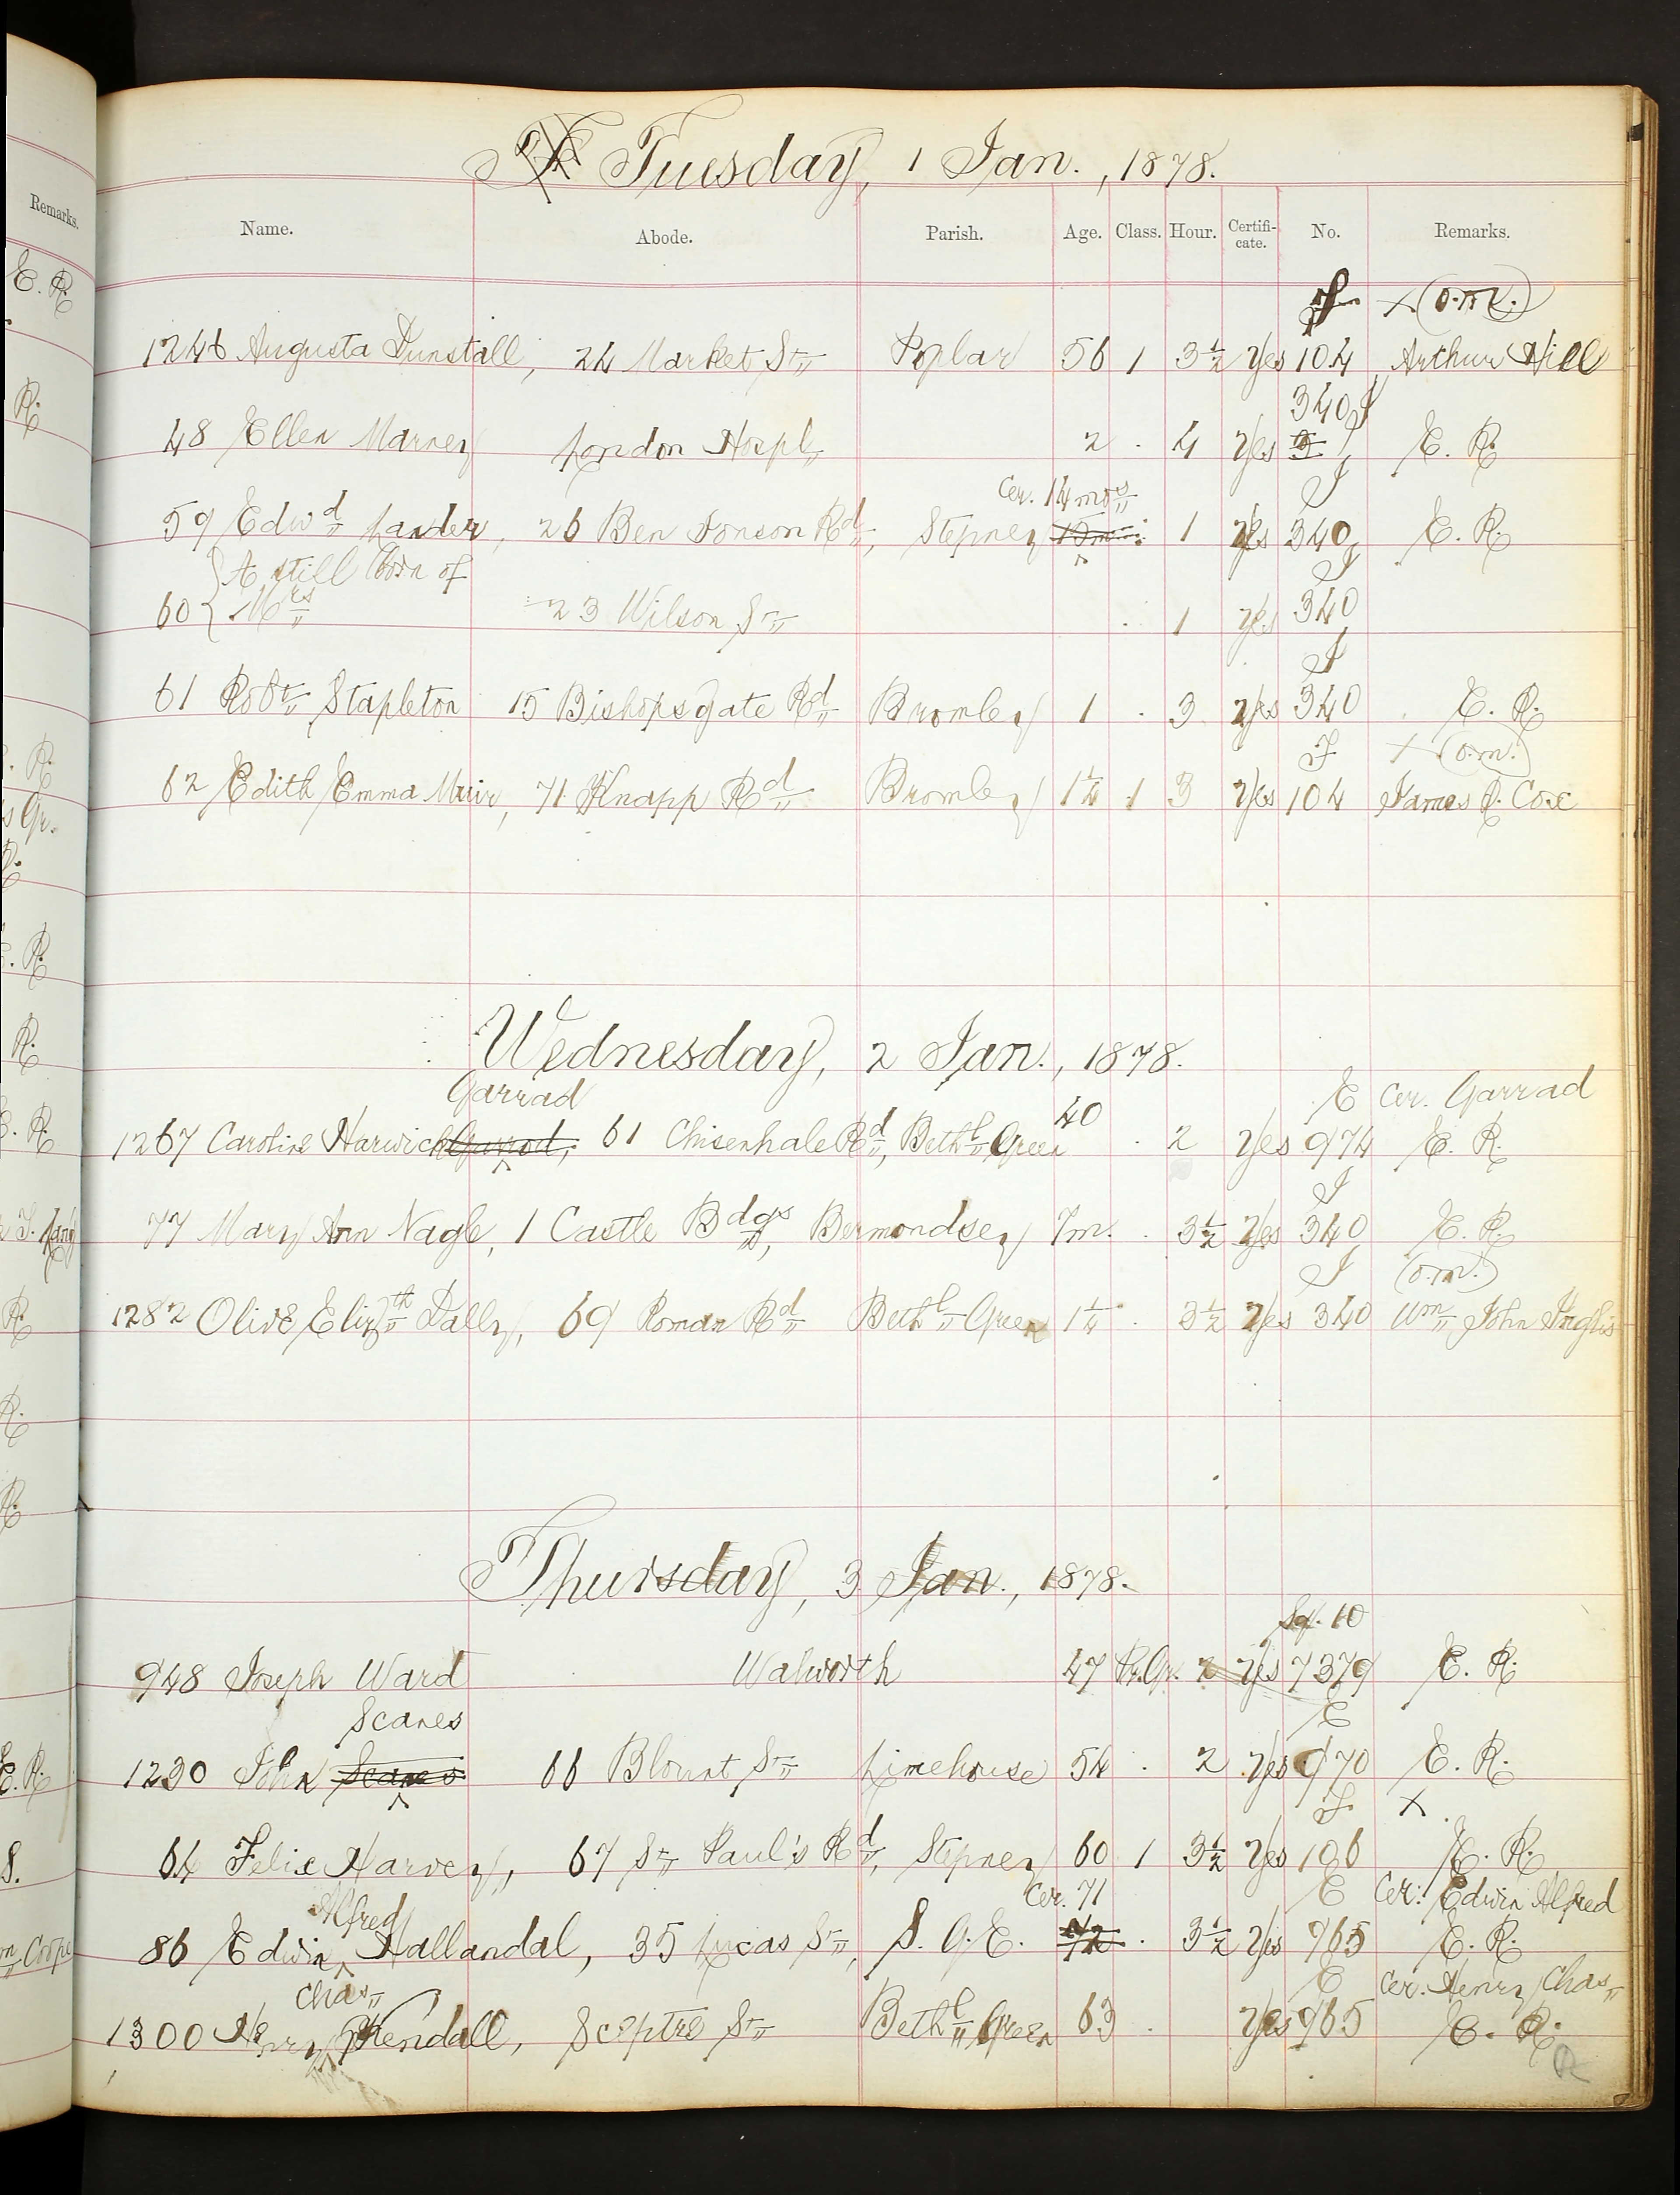 Remarks.
E. R.
Tuesday, 1 Jan., 1878.
Name. Abode. Parish. Age. Class. Hour. Certifi-cate. No. Remarks.
X (O.M.)
1246 Augusta Dunstall, 24 Market St Poplar 56 1 3½ Yes 104 Arthur Hill
340 J
48 Ellen Marney London Hospl 2 . 4 Yes E. R.
Cer. 14 mos J
59 Edwd Lander, 26 Ben Jonson Rd, Stepney 1 Yes 340 E. R.
A still born of J
60 Mrs 23 Wilson St . 1 Yes 340
J
61 Robt Stapleton 15 Bishopsgate Rd Bromley 1 . 3 Yes 340 E. R.
J X (O.M.)
62 Edith Emma Muir, 71 Knapp Rd Bromley 1¼ 1 3 Yes 104 James R. Cox
Wednesday, 2 Jan., 1878.
Garrad 40 E Cer. Garrad
1267 Caroline Harwich Garrod, 61 Chisenhale Rd, Bethl Green . 2 Yes 974 E. R.
J
77 Mary Ann Nagle, 1 Castle Bdgs, Bermondsey 7m. . 3½ Yes 340 E. R.
J (O.M.)
1282 Olive Elizth Dally, 69 Roman Rd Bethl Green 1¼ . 3½ Yes 340 Wm John Inglis
Thursday, 3 Jan., 1878.
Sq. 10
948 Joseph Ward Walworth 47 Pr. Gr. 2 Yes 7379 E. R.
Scanes E
1230 John 66 Blount St Limehouse 54 . 2 Yes 970 E. R.
J X
64 Felix Harvey, 67 St Paul's Rd, Stepney 60 1 3½ Yes 106 E. R.
Alfred Cer. 71 E Cer. Edwin Alfred
86 Edwin Hallandal, 35 Lucas St, S. G. E. 72 . 3½ Yes 965 E. R.
Chas E Cer. Henry Chas
1300 Henry Kendall, Sceptre St Bethl Green 63 . Yes 965 E. R.